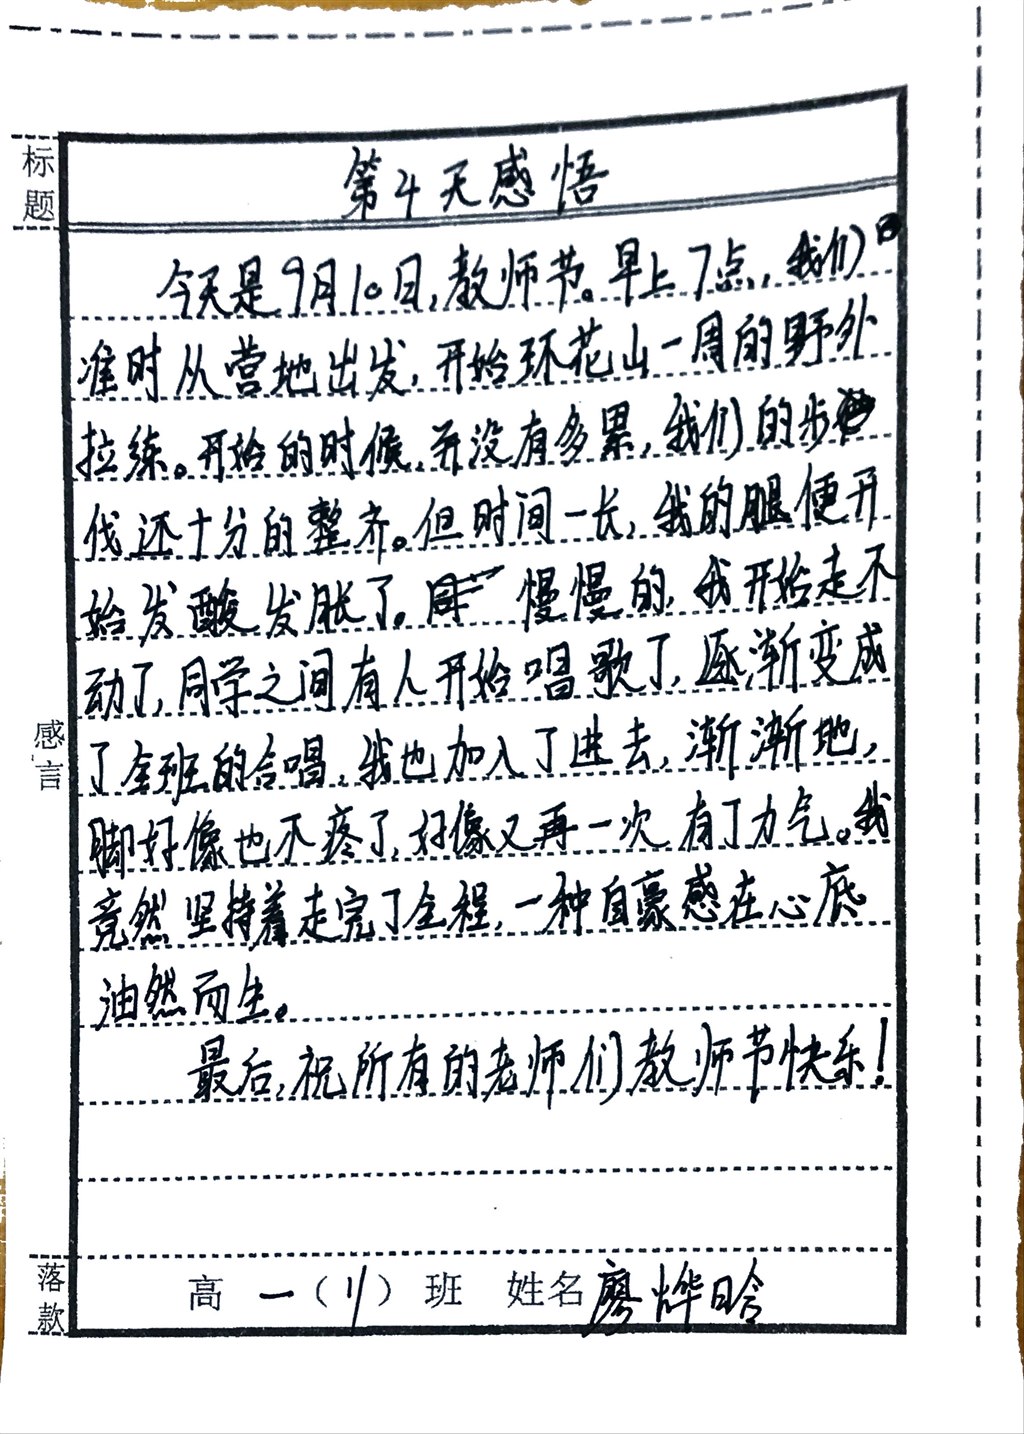 标题
第4天感悟
今天是9月10日,教师节。早上7点,我们
准时从营地出发,开始环花山一周的野外
拉练。开始的时候,并没有多累,我们的步
伐还十分的整齐。但时间一长,我的腿便开
始发酸发胀了。慢慢的,我开始走不
动了,同学之间有人开始唱歌了,逐渐变成
了全班的合唱,我也加入了进去,渐渐地,
脚好像也不疼了,好像又再一次有了力气。我
竟然坚持着走完了全程,一种自豪感在心底
油然而生。
最后,祝所有的老师们教师节快乐!
感言
落款
高一(11)班 姓名廖烨晗